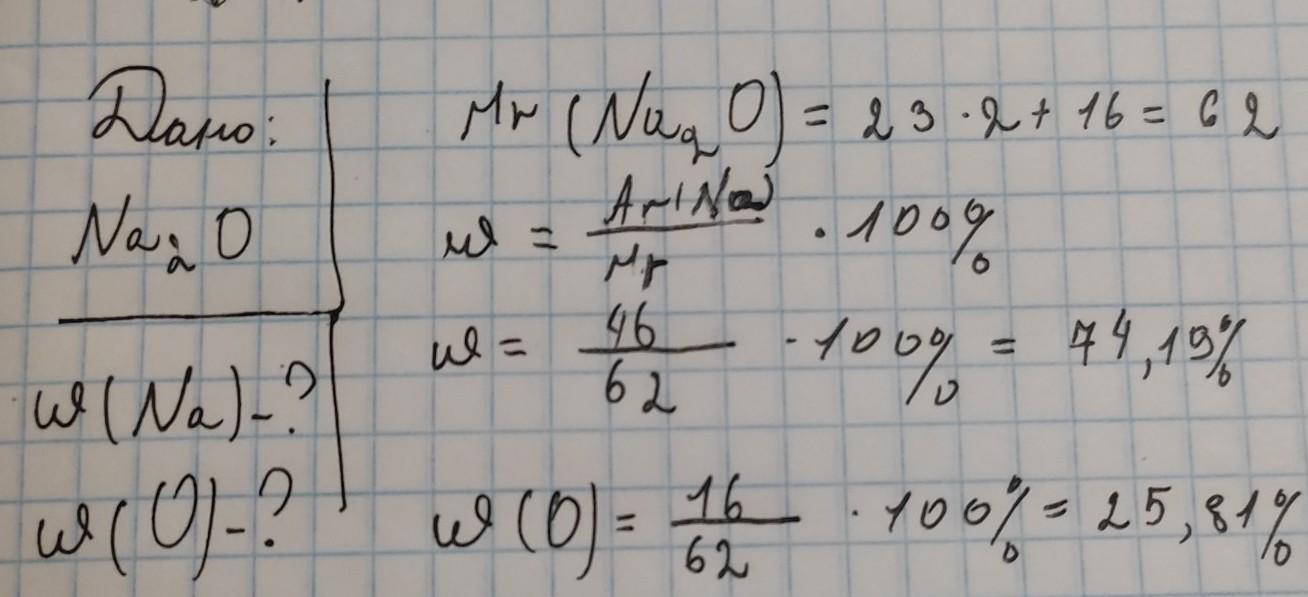 Дано:
Na₂O
w(Na)-?
w(O)-?
Mr(Na₂O) = 23·2+16=62
w = Ar(Na)/Mr ·100%
w = 46/62 ·100% = 74,19%
w(O) = 16/62 ·100% = 25,81%